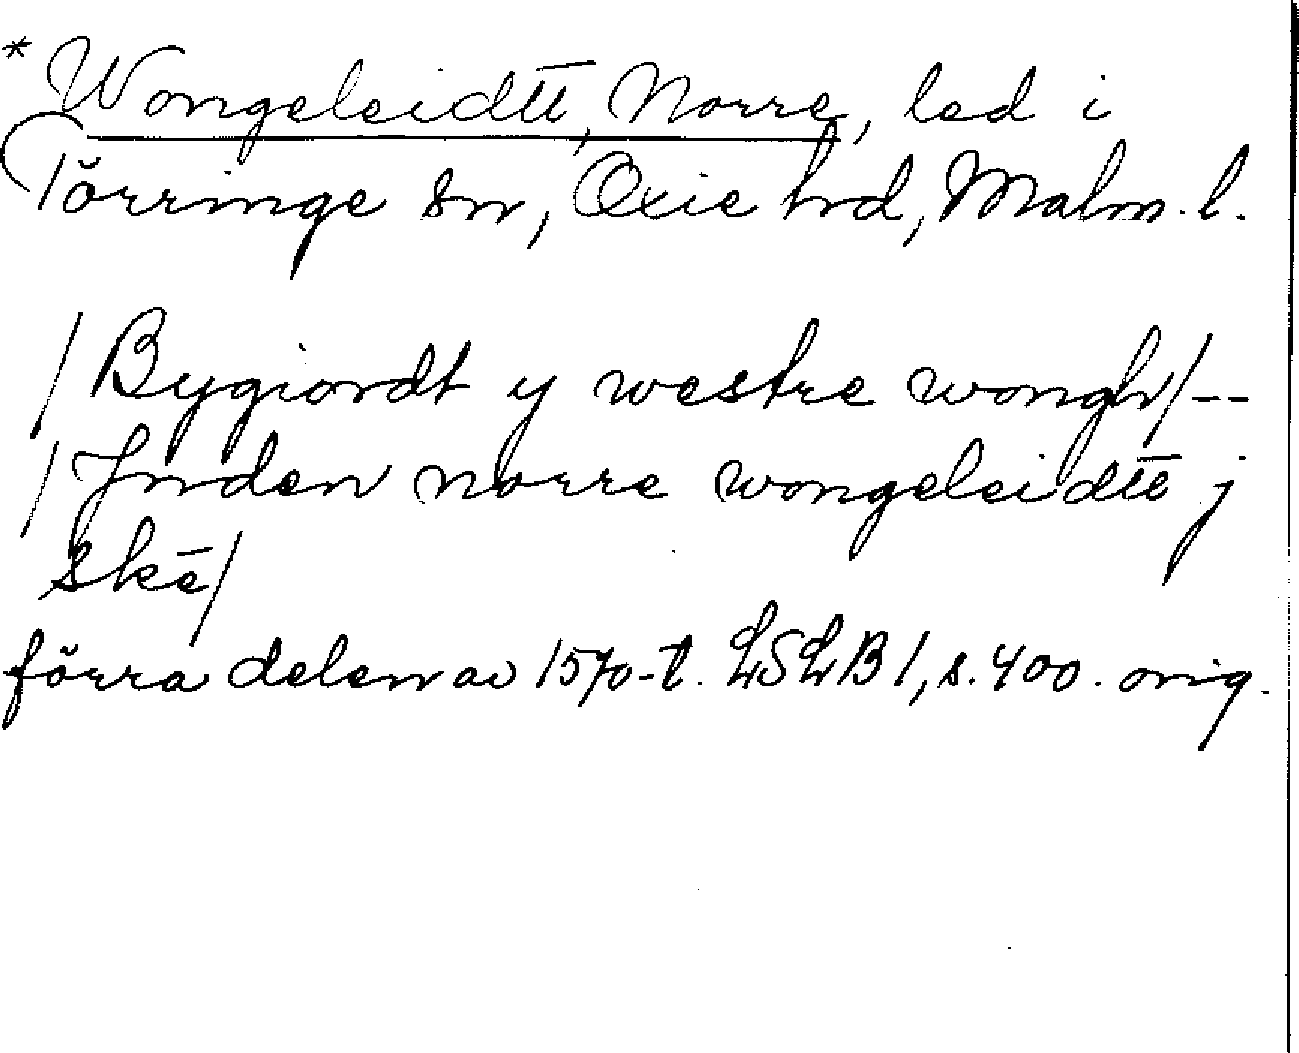 * Wongeleidtt, Norre, led i
Törringe sn, Oxie hrd, Malm. l.
/Bygiordt y westre wongh/--
/Jnden norre wongeleidtt j
skē/
förra delen av 1570-t. LSLB 1, s. 400. orig.